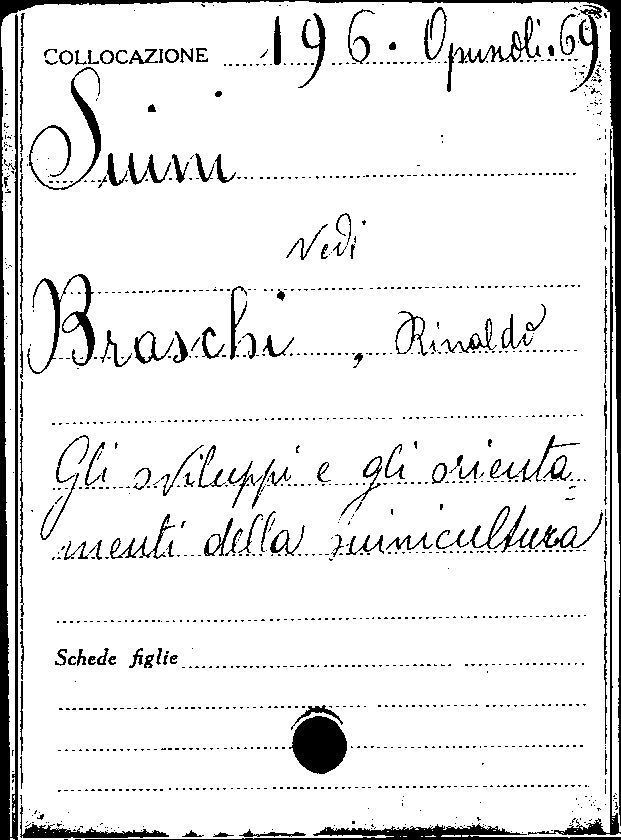 COLLOCAZIONE 196. Opuscoli. 69
Suini
Vedi
Braschi, Rinaldo
Gli sviluppi e gli orienta=
menti della suinicultura
Schede figlie